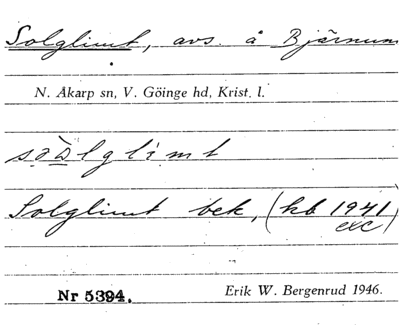 Solglimt, avs. å Bjärnum
N. Åkarp sn, V. Göinge hd, Krist. l.
Solglimt bek, (kb 1941
exc)
Nr 5394.
Erik W. Bergenrud 1946.